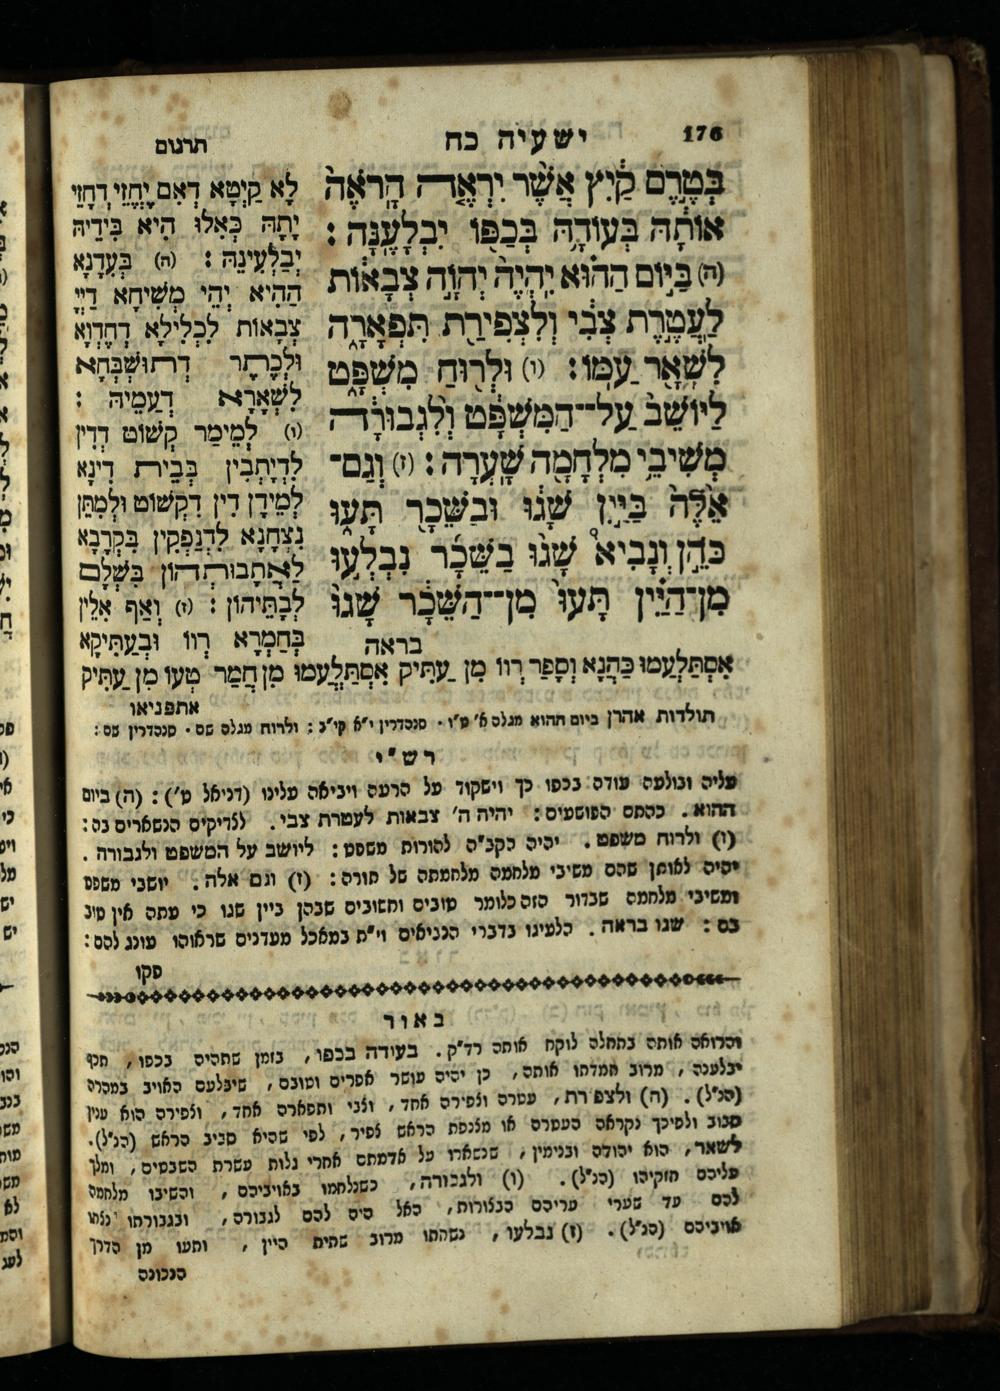 176
ישעיה כח
תרגום
בְּטֶרֶם קַ֔יִץ אֲשֶׁ֨ר יִרְאֶ֤ה הָֽרֹאֶה֙
אוֹתָ֔הּ בְּעוֹדָ֥הּ בְּכַפּ֖וֹ יִבְלָעֶֽנָּה :
(ה) בַּיּ֣וֹם הַה֗וּא יִֽהְיֶה֙ יְהוָ֣ה צְבָא֔וֹת
לַעֲטֶ֣רֶת צְבִ֔י וְלִצְפִירַ֖ת תִּפְאָרָ֑ה
לִשְׁאָ֖ר עַמּֽוֹ : (ו) וּלְר֖וּחַ מִשְׁפָּ֑ט
לַיּוֹשֵׁב֙ עַל־הַמִּשְׁפָּ֔ט וְלִ֨גְבוּרָ֔ה
מְשִׁיבֵ֥י מִלְחָמָ֖ה שָֽׁעְרָה : (ז) וְגַם־
אֵ֙לֶּה֙ בַּיַּ֣יִן שָׁג֔וּ וּבַשֵּׁכָ֖ר תָּע֑וּ
כֹּהֵ֣ן וְנָבִיא֩ שָׁג֨וּ בַשֵּׁכָ֜ר נִבְלְע֣וּ
מִן־הַיַּ֗יִן תָּעוּ֙ מִן־הַשֵּׁכָ֔ר שָׁגוּ֙
בראה
לָא קַיְטָא דְאִם יֶחֱזֵי דְחָזֵי
יָתָהּ כְּאִלּוּ הִיא בִּידֵיהּ
יִבְלְעִינֵהּ : (ה) בְּעִדָנָא
הַהִיא יְהֵי מְשִׁיחָא דַיְיָ
צְבָאוֹת לִכְלִילָא דְחֶדְוָא
וּלְכֶתֶר דְתוּשְׁבְּחָא
לִשְׁאָרָא דְעַמֵיהּ :
(ו) לְמֵימַר קְשׁוֹט דְדִין
לִדְיָתְבִין בְּבֵית דִינָא
לְמֵידַן דִין דִקְשׁוֹט וּלְמִתַּן
נִצְחָנָא לִדְנַפְקִין בִּקְרָבָא
לַאֲתָבוּתְהוֹן בִּשְׁלָם
לְבָתֵּיהוֹן : (ז) וְאַף אִלֵין
בְּחַמְרָא רְווֹ וּבְעַתִּיקָא
אִסְתַּלְעֲמוּ כַּהֲנָא וְסָפַר רְווֹ מִן עַתִּיק אִסְתַּלְעֲמוּ מִן חֲמַר טְעוֹ מִן עַתִּיק
אתפניאו
תולדות אהרן ביום ההוא מגלה א׳ ט״ו · סנהדרין י״א קי״ב : ולרוח מגלה שם · סנהדרין שם :
רש״י
עליה ובולעה עודה בכפו כך וישקוד על הרעה ויביאה עלינו (דניאל ט׳) : (ה) ביום
ההוא . כהתם הפושעים : יהיה ה׳ צבאות לעטרת צבי . לצדיקים הנשארים בה :
(ו) ולרוח משפט . יהיה הקב״ה להורות משפט : ליושב על המשפט ולגבורה .
יהיה לאותן שהם משיבי מלחמה מלחמתה של תורה : (ז) וגם אלה . יושבי משפט
ומשיבי מלחמה שבדור הזה כלומר טובים וחשובים שבהן ביין שגו כי עתה אין טוב
בם : שגו בראה . הלעיגו בדברי הנביאים וי״ת במאכל מעדנים שראוהו עונג להם :
פקו
באור
והרואה אותה בתחלה לוקח אותה רד״ק . בעודה בכפו , בזמן שתהיה בכפו , תכף
יבלענה , מרוב חמדתו אותה , כן יהיה עושר אפרים וטובם , שיבלעם האויב במהרה
(הנ״ל) . (ה) ולצפרת , עטרה וצפירה אחד , וצבי ותפארה אחד , וצפירה הוא ענין
סבוב ולפיכך נקראה העטרה או מצנפת הראש צפיר , לפי שהיא סביב הראש (הנ״ל) .
לשאר , הוא יהודה ובנימין , שנשארו על אדמתם אחרי גלות עשרת השבטים , ומלך
עליהם חזקיהו (הנ״ל) . (ו) ולגבורה , כשנלחמו באויביהם , והשיבו מלחמה
להם עד שערי עריהם הבצורות , האל היה להם לגבורה , ובגבורתו נצחו
אויביהם (הנ״ל) . (ז) נבלעו , נשחתו מרוב שתית היין , ותעו מן הדרך
הנכונה